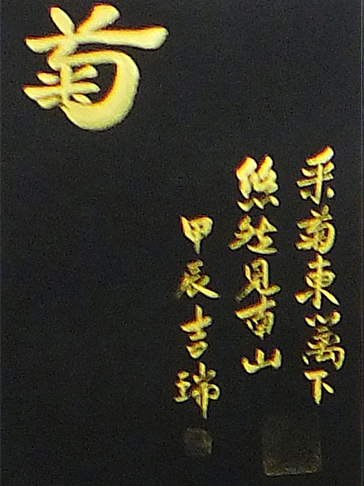 菊
采菊東篱下
悠然見南山
甲辰吉瑞